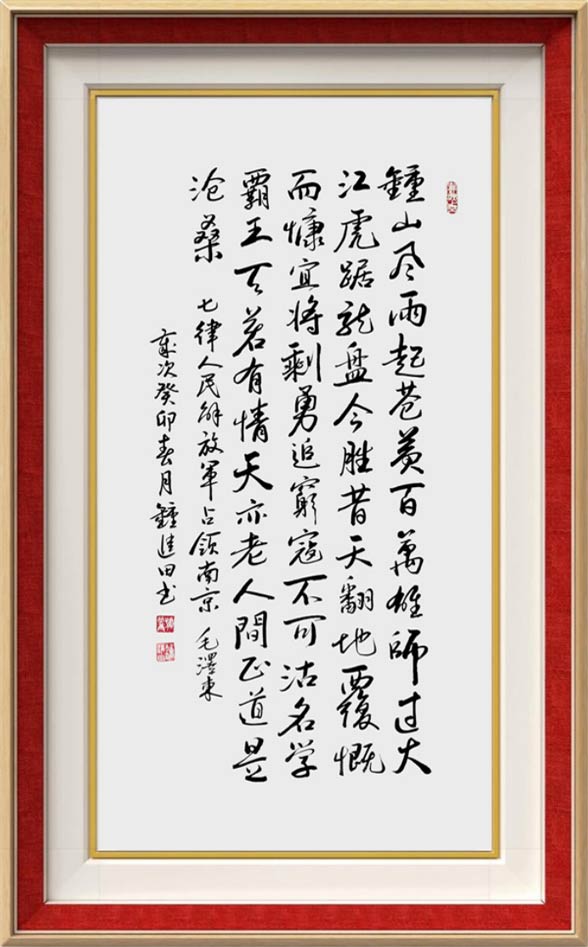 鍾山风雨起苍黄百萬雄师过大
江虎踞龙盘今胜昔天翻地覆慨
而慷宜将剩勇追窮寇不可沽名学
霸王天若有情天亦老人間正道是
沧桑 七律人民解放軍占领南京 毛澤東
岁次癸卯春月鍾進田书